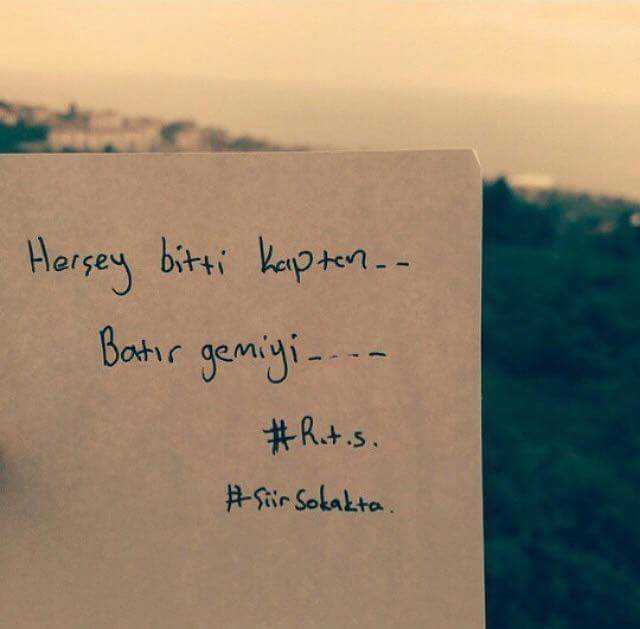 Herşey bitti kaptan--
Batır gemiyi----
#R.t.s.
#şiirSokakta.